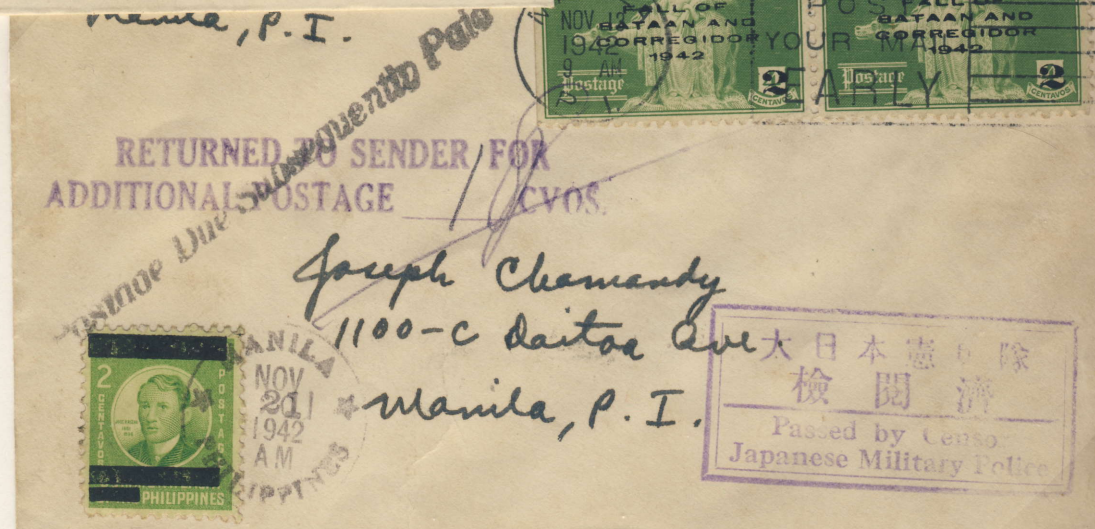 Manila, P. I.
NOV 12
1942
9 AM
P. I.
POST
YOUR MA
EARLY
FALL OF
BATAAN AND
CORREGIDOR
1942
Postage
2
CENTAVOS
FALL OF
BATAAN AND
CORREGIDOR
1942
Postage
2
CENTAVOS
Postage Due Subsequently Paid
RETURNED TO SENDER FOR
ADDITIONAL POSTAGE 1 CVOS.
Joseph Chamandy
1100-C Daitoa Ave.
Manila, P. I.
2
CENTAVOS
POSTAGE
PHILIPPINES
MANILA
NOV
1942
AM
PHILIPPINES
大日本憲兵隊
檢閲濟
Passed by Censor
Japanese Military Police